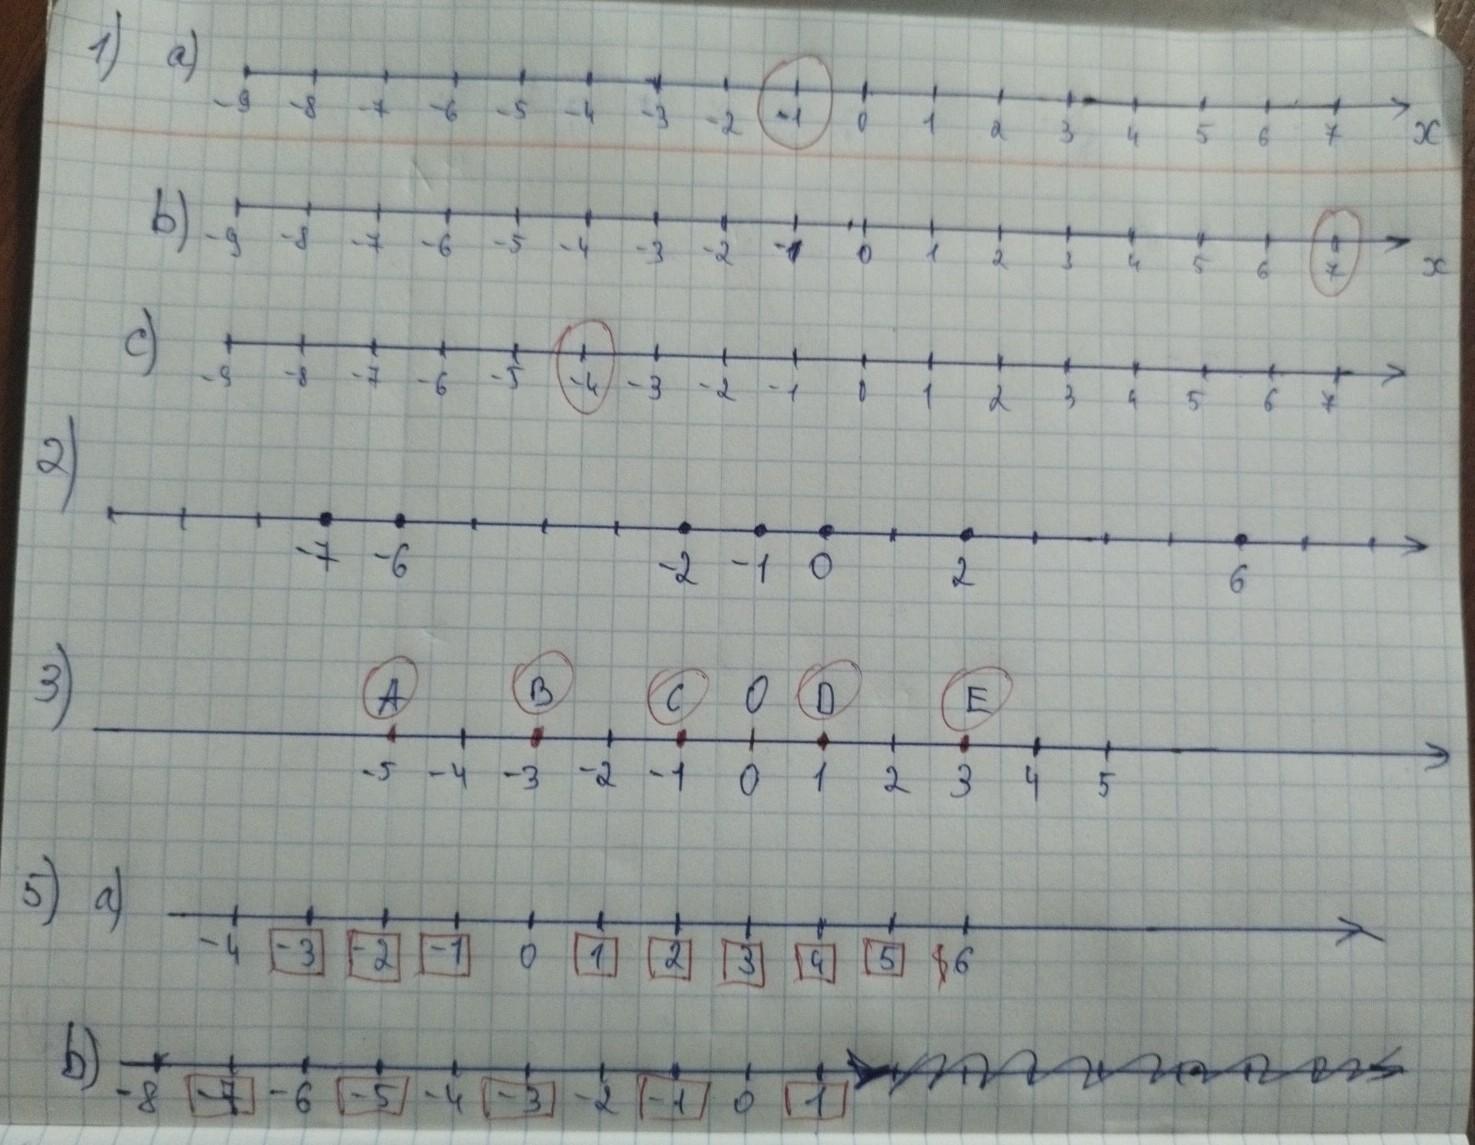 1) a)
-9 -8 -7 -6 -5 -4 -3 -2 -1 0 1 2 3 4 5 6 7 x
b)
-9 -8 -7 -6 -5 -4 -3 -2 -1 0 1 2 3 4 5 6 7 x
c)
-9 -8 -7 -6 -5 -4 -3 -2 -1 0 1 2 3 4 5 6 7
2)
-7 -6 -2 -1 0 2 6
3) A B C O D E
-5 -4 -3 -2 -1 0 1 2 3 4 5
5) a)
-4 -3 -2 -1 0 1 2 3 4 5 6
b)
-8 -7 -6 -5 -4 -3 -2 -1 0 1